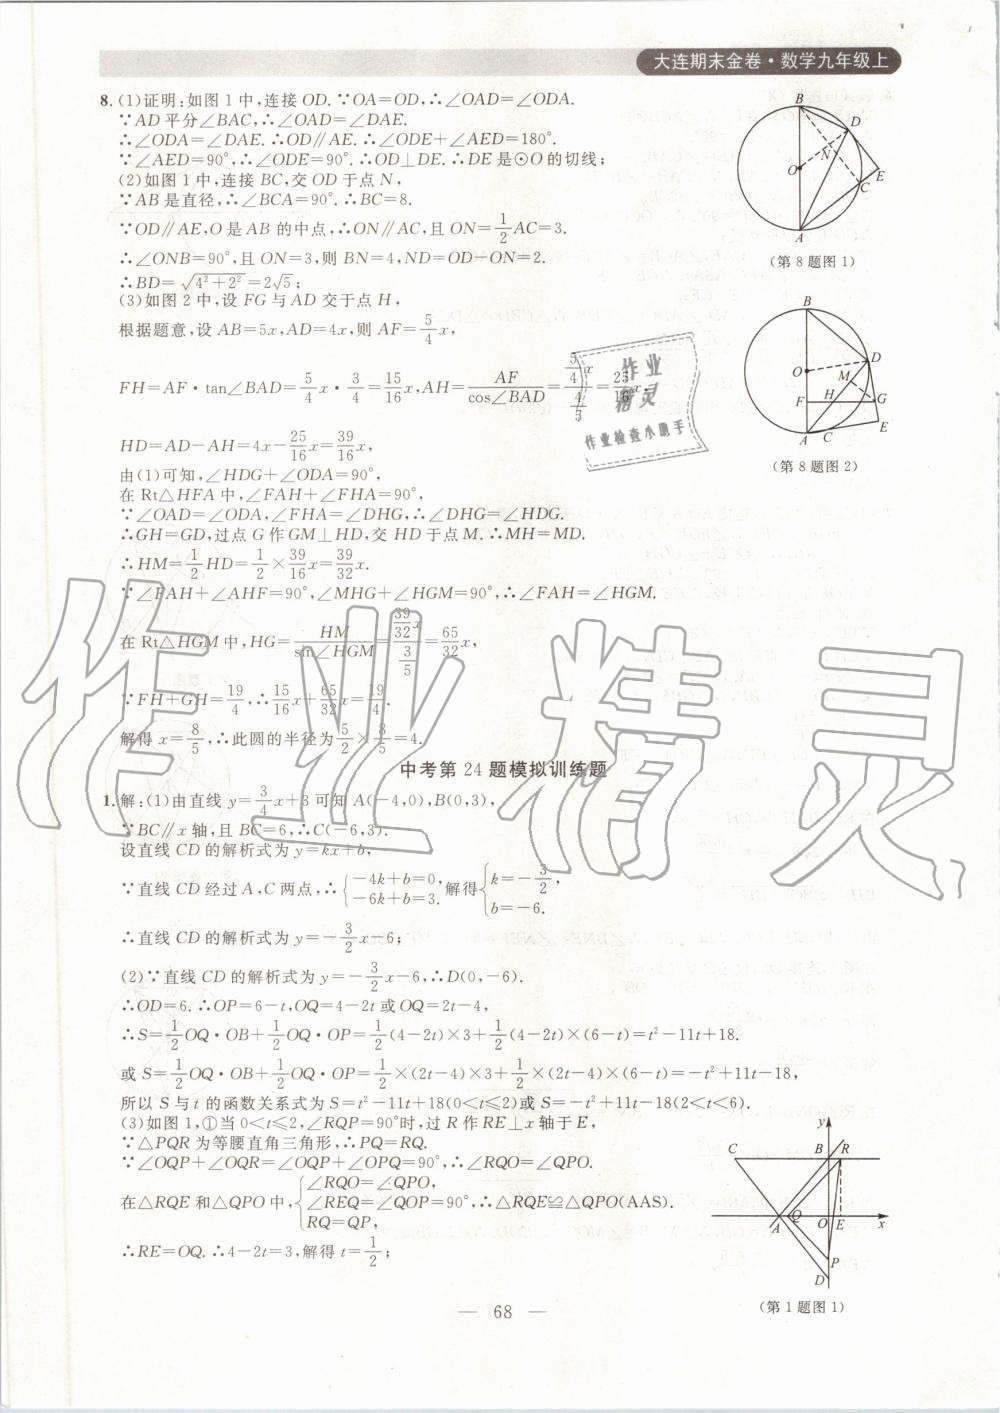 大连期末金卷·数学九年级上
8.(1)证明:如图1中,连接OD.∵OA=OD,∴∠OAD=∠ODA.
∵AD平分∠BAC,∴∠OAD=∠DAE.
∴∠ODA=∠DAE.∴OD∥AE.∴∠ODE+∠AED=180°.
∵∠AED=90°,∴∠ODE=90°.∴OD⊥DE.∴DE是⊙O的切线;
(2)如图1中,连接BC,交OD于点N,
∵AB是直径,∴∠BCA=90°.∴BC=8.
∵OD∥AE,O是AB的中点,∴ON∥AC,且ON=1/2AC=3.
∴∠ONB=90°,且ON=3,则BN=4,ND=OD-ON=2.
∴BD=√(4²+2²)=2√5;
(3)如图2中,设FG与AD交于点H,
根据题意,设AB=5x,AD=4x,则AF=5/4x,
FH=AF·tan∠BAD=5/4x·3/4=15/16x,AH=AF/cos∠BAD=(5/4x)/(4/5)=25/16x.
HD=AD-AH=4x-25/16x=39/16x,
由(1)可知,∠HDG+∠ODA=90°,
在Rt△HFA中,∠FAH+∠FHA=90°,
∵∠OAD=∠ODA,∠FHA=∠DHG,∴∠DHG=∠HDG.
∴GH=GD,过点G作GM⊥HD,交HD于点M.∴MH=MD.
∴HM=1/2HD=1/2×39/16x=39/32x.
∵∠FAH+∠AHF=90°,∠MHG+∠HGM=90°,∴∠FAH=∠HGM.
在Rt△HGM中,HG=HM/sin∠HGM=(39/32x)/(3/5)=65/32x,
∵FH+GH=19/4,∴15/16x+65/32x=19/4.
解得x=8/5,∴此圆的半径为5/2×8/5=4.
中考第24题模拟训练题
1.解:(1)由直线y=3/4x+3可知A(-4,0),B(0,3),
∵BC∥x轴,且BC=6,∴C(-6,3).
设直线CD的解析式为y=kx+b,
∵直线CD经过A,C两点,∴{-4k+b=0,-6k+b=3.解得{k=-3/2,b=-6.
∴直线CD的解析式为y=-3/2x-6;
(2)∵直线CD的解析式为y=-3/2x-6,∴D(0,-6).
∴OD=6.∴OP=6-t,OQ=4-2t或OQ=2t-4,
∴S=1/2OQ·OB+1/2OQ·OP=1/2(4-2t)×3+1/2(4-2t)×(6-t)=t²-11t+18.
或S=1/2OQ·OB+1/2OQ·OP=1/2×(2t-4)×3+1/2×(2t-4)×(6-t)=-t²+11t-18,
所以S与t的函数关系式为S=t²-11t+18(0<t≤2)或S=-t²+11t-18(2<t<6).
(3)如图1,①当0<t≤2,∠RQP=90°时,过R作RE⊥x轴于E,
∵△PQR为等腰直角三角形,∴PQ=RQ.
∵∠OQP+∠OQR=∠OQP+∠OPQ=90°,∴∠RQO=∠QPO.
在△RQE和△QPO中,{∠RQO=∠QPO,∠REQ=∠QOP=90°,RQ=QP,∴△RQE≌△QPO(AAS).
∴RE=OQ.∴4-2t=3,解得t=1/2;
B
D
N
O
E
C
A
(第8题图1)
B
O
D
M
F
H
G
E
A
C
(第8题图2)
y
C
B
R
A
Q
O
E
x
P
D
(第1题图1)
— 68 —
作业
精灵
作业检查小助手
作业精灵